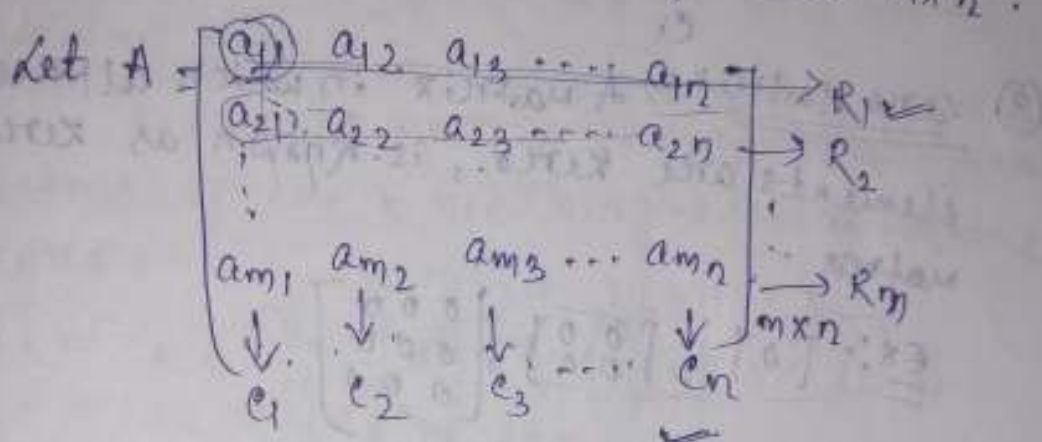 m×n.
Let A = [ a11 a12 a13 .... a1n → R1
a21 a22 a23 ..... a2n → R2
⋮ ⋮
am1 am2 am3 ... amn ] m×n → Rm
↓ ↓ ↓ ↓
C1 C2 C3 ..... Cn